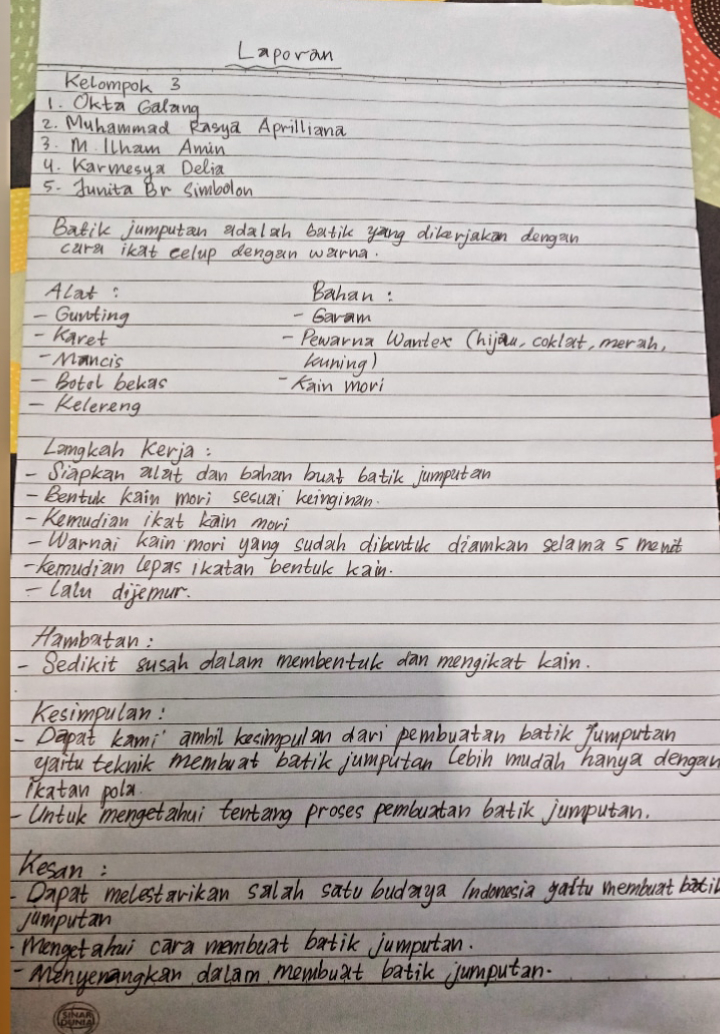 Laporan
Kelompok 3
1. Okta Galang
2. Muhammad Rasya Aprilliana
3. M. Ilham Amin
4. Karmesya Delia
5. Junita Br Simbolon
Batik jumputan adalah batik yang dikerjakan dengan
cara ikat celup dengan warna.
Alat :
- Gunting
- Karet
- Mancis
- Botol bekas
- Kelereng
Bahan :
- Garam
- Pewarna Wantex (hijau, coklat, merah,
kuning)
- Kain mori
Langkah Kerja :
- Siapkan alat dan bahan buat batik jumputan
- Bentuk kain mori sesuai keinginan.
- Kemudian ikat kain mori
- Warnai kain mori yang sudah dibentuk diamkan selama 5 menit
- Kemudian lepas ikatan bentuk kain.
- Lalu dijemur.
Hambatan :
- Sedikit susah dalam membentuk dan mengikat kain.
Kesimpulan :
- Dapat kami ambil kesimpulan dari pembuatan batik jumputan
yaitu teknik membuat batik jumputan lebih mudah hanya dengan
ikatan pola.
- Untuk mengetahui tentang proses pembuatan batik jumputan.
Kesan :
- Dapat melestarikan salah satu budaya Indonesia yaitu membuat batik
jumputan
- Mengetahui cara membuat batik jumputan.
- Menyenangkan dalam membuat batik jumputan.
SINAR
DUNIA